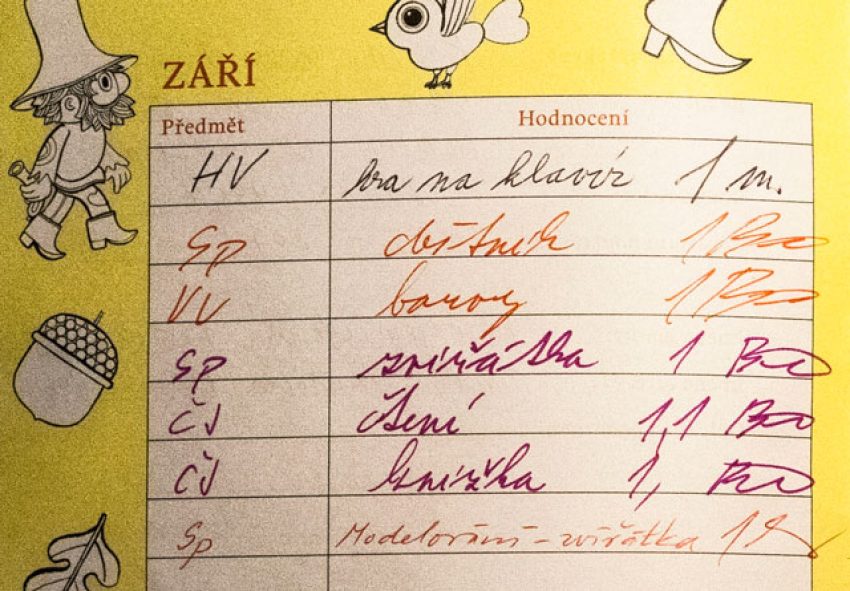 ZÁŘÍ
Předmět Hodnocení
HV hra na klavír 1 m.
Sp deštník 1
VV barvy 1
Sp zvířátka 1
ČJ čtení 1,1
ČJ knížka 1,
Sp Modelování - zvířátka 1